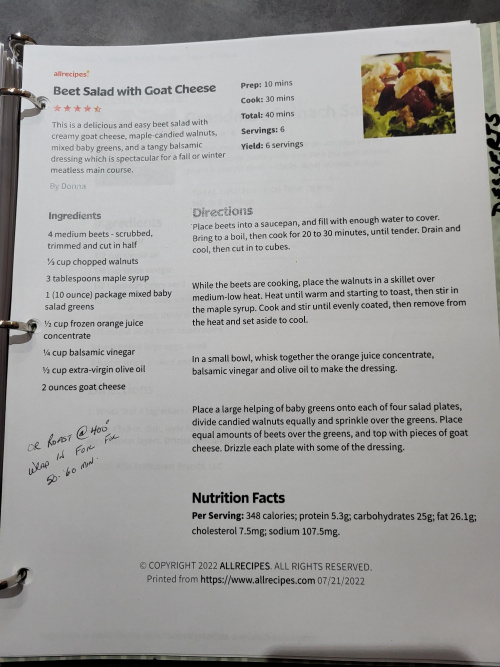 allrecipes
Beet Salad with Goat Cheese
This is a delicious and easy beet salad with
creamy goat cheese, maple-candied walnuts,
mixed baby greens, and a tangy balsamic
dressing which is spectacular for a fall or winter
meatless main course.
By Donna
Prep: 10 mins
Cook: 30 mins
Total: 40 mins
Servings: 6
Yield: 6 servings
Ingredients
4 medium beets - scrubbed,
trimmed and cut in half
⅓ cup chopped walnuts
3 tablespoons maple syrup
1 (10 ounce) package mixed baby
salad greens
½ cup frozen orange juice
concentrate
¼ cup balsamic vinegar
½ cup extra-virgin olive oil
2 ounces goat cheese
OR ROAST @ 400°
WRAP IN FOIL FOR
50-60 MIN.
Directions
Place beets into a saucepan, and fill with enough water to cover.
Bring to a boil, then cook for 20 to 30 minutes, until tender. Drain and
cool, then cut in to cubes.
While the beets are cooking, place the walnuts in a skillet over
medium-low heat. Heat until warm and starting to toast, then stir in
the maple syrup. Cook and stir until evenly coated, then remove from
the heat and set aside to cool.
In a small bowl, whisk together the orange juice concentrate,
balsamic vinegar and olive oil to make the dressing.
Place a large helping of baby greens onto each of four salad plates,
divide candied walnuts equally and sprinkle over the greens. Place
equal amounts of beets over the greens, and top with pieces of goat
cheese. Drizzle each plate with some of the dressing.
Nutrition Facts
Per Serving: 348 calories; protein 5.3g; carbohydrates 25g; fat 26.1g;
cholesterol 7.5mg; sodium 107.5mg.
© COPYRIGHT 2022 ALLRECIPES. ALL RIGHTS RESERVED.
Printed from https://www.allrecipes.com 07/21/2022
DESSERTS